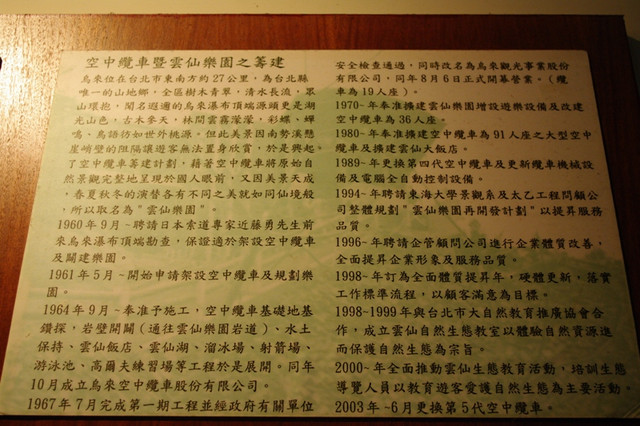 空中纜車暨雲仙樂園之籌建
烏來位在台北市東南方約27公里，為台北縣
唯一的山地鄉，全區樹木青翠，清水長流，眾
山環抱，聞名遐邇的烏來瀑布頂端源頭更是湖
光山色，古木參天，林間雲霧濛濛，彩蝶、蟬
鳴、鳥語彷如世外桃源，但此美景因南勢溪懸
崖峭壁的阻隔讓遊客無法置身欣賞，於是興起
了空中纜車籌建計劃，藉著空中纜車將原始自
然景觀完整地呈現於國人眼前，又因美景天成
，春夏秋冬的演替各有不同之美就如同仙境般
，所以取名為"雲仙樂園"。
1960年9月~聘請日本索道專家近藤勇先生前
來烏來瀑布頂端勘查，保證適於架設空中纜車
及開建樂園。
1961年5月~開始申請架設空中纜車及規劃樂
園。
1964年9月~奉准予施工，空中纜車基礎地基
鑽探，岩壁開闢(通往雲仙樂園岩道)、水土
保持、雲仙飯店、雲仙湖、溜冰場、射箭場、
游泳池、高爾夫練習場等工程於是展開。同年
10月成立烏來空中纜車股份有限公司。
1967年7月完成第一期工程並經政府有關單位
安全檢查通過，同時改名為烏來觀光事業股份
有限公司，同年8月6日正式開幕營業。(纜
車為19人座)。
1970~年奉准擴建雲仙樂園增設遊樂設備及改建
空中纜車為36人座。
1980~年奉准擴建空中纜車為91人座之大型空中
纜車及擴建雲仙大飯店。
1989~年更換第四代空中纜車及更新纜車機械設
備及電腦全自動控制設備。
1994~年聘請東海大學景觀系及太乙工程問顧公
司整體規劃"雲仙樂園再開發計劃"以提昇服務
品質。
1996~年聘請企管顧問公司進行企業體質改善，
全面提昇企業形象及服務品質。
1998~年訂為全面體質提昇年，硬體更新，落實
工作標準流程，以顧客滿意為目標。
1998~1999年與台北市大自然教育推廣協會合
作，成立雲仙自然生態教室以體驗自然資源進
而保護自然生態為宗旨。
2000~年全面推動雲仙生態教育活動，培訓生態
導覽人員以教育遊客愛護自然生態為主要活動。
2003年~6月更換第5代空中纜車。